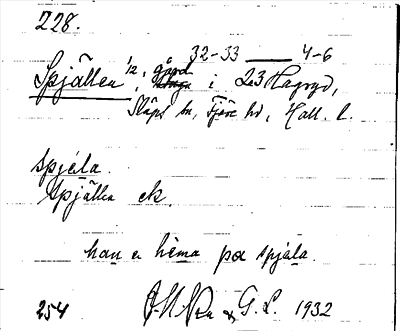 228.
32-33 — 4-6
Spjällen 1/2, gård i 2,3 Hagryd,
Släps sn, Fjäre hd, Hall. l.
spjela.
Spjällen ek.
han e hema på spjäla.
254 & G. L. 1932